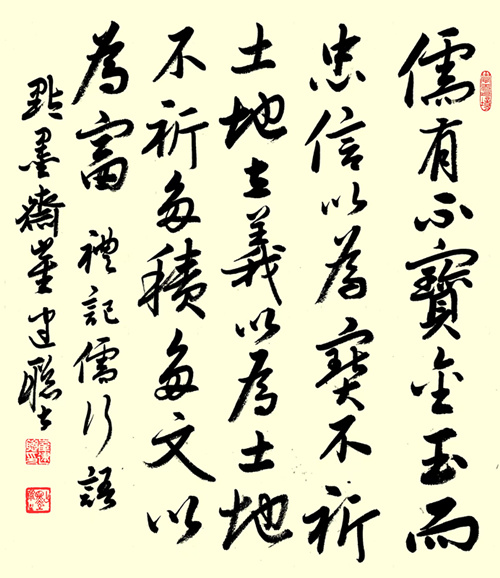 儒有不寶金玉而
忠信以為寶不祈
土地立義以為土地
不祈多積多文以
為富 禮記儒行語
點墨齋董建聰